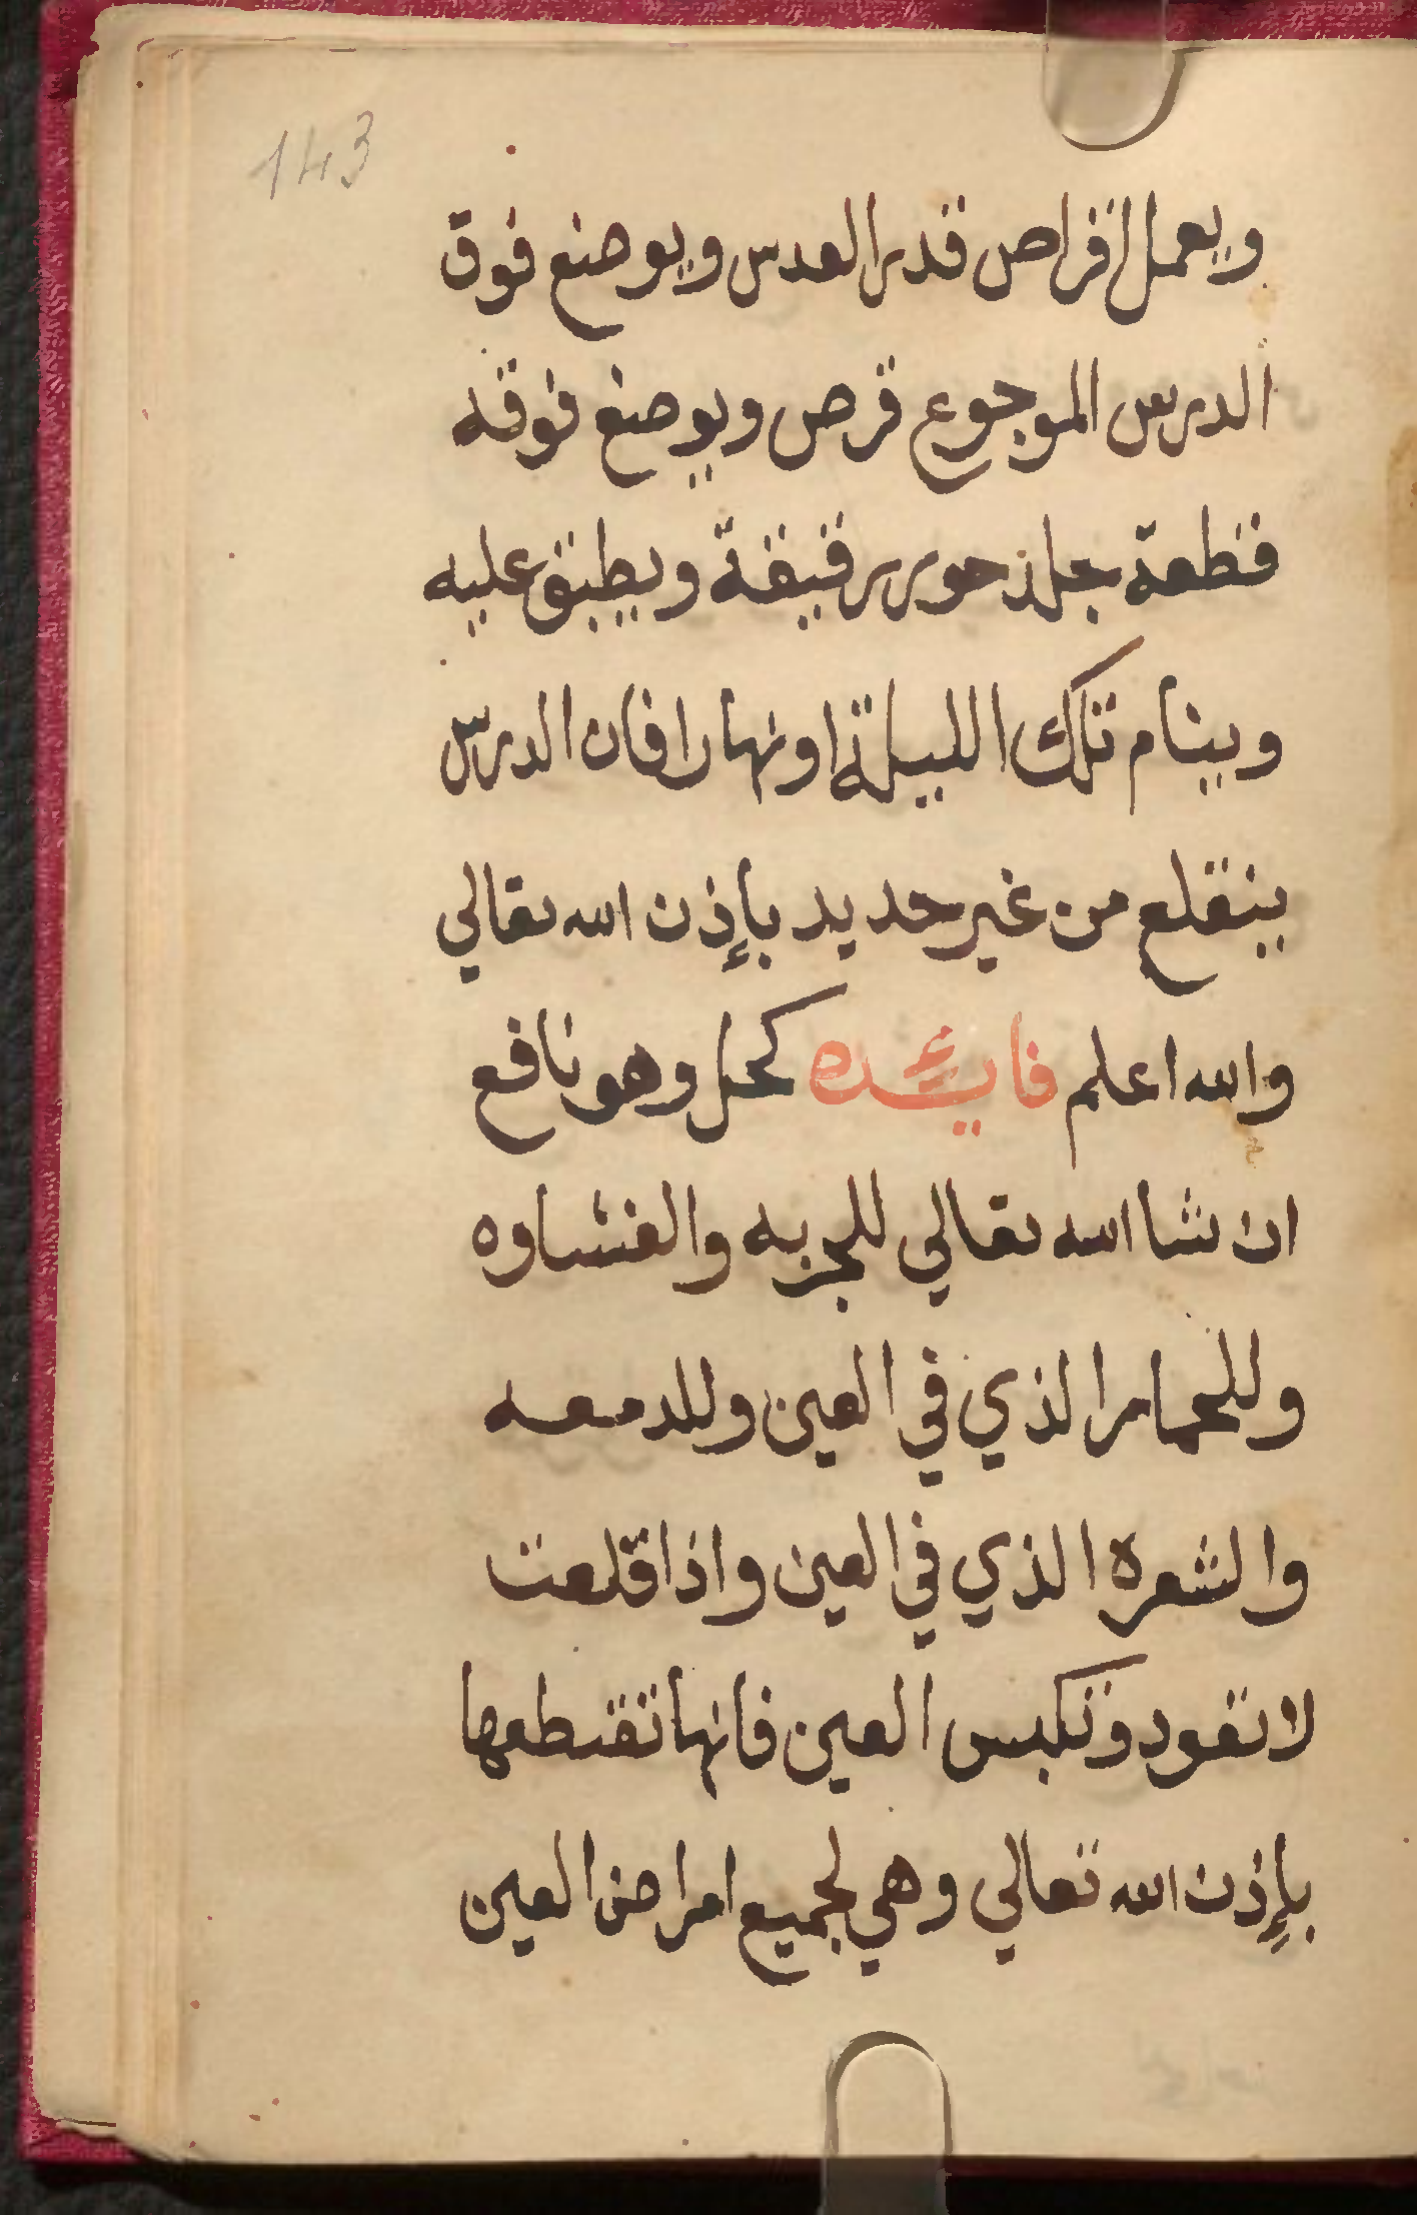 143
ويعمل اقراص قدر العدس ويوضع فوق
الدرس الموجوع قرص ويوضع فوقه
قطعة جلد حور رقيقة ويطبق عليه
وينام تلك الليلة او نهارا فان الدرس
ينقلع من غير حديد بإذن الله تعالي
والله اعلم فايئده كحل وهو نافع
ان شا الله تعالي للجربه والغشاوه
وللحمار الذي في العين وللدمعه
والشعره الذي في العين واذا قلعت
لا تعود وتكبس العين فانها تقطعها
بإذن الله تعالي وهي لجميع امراض العين